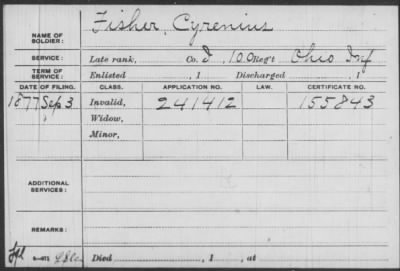 Fisher, Cyrenius
NAME OF
SOLDIER:
SERVICE: Late rank, Co. I, 100 Reg't Ohio Inf
TERM OF
SERVICE: Enlisted , 1 Discharged , 1
DATE OF FILING. CLASS. APPLICATION NO. LAW. CERTIFICATE NO.
1877 Sep 3 Invalid, 241412 155843
Widow,
Minor,
ADDITIONAL
SERVICES:
REMARKS:
Died , 1 , at